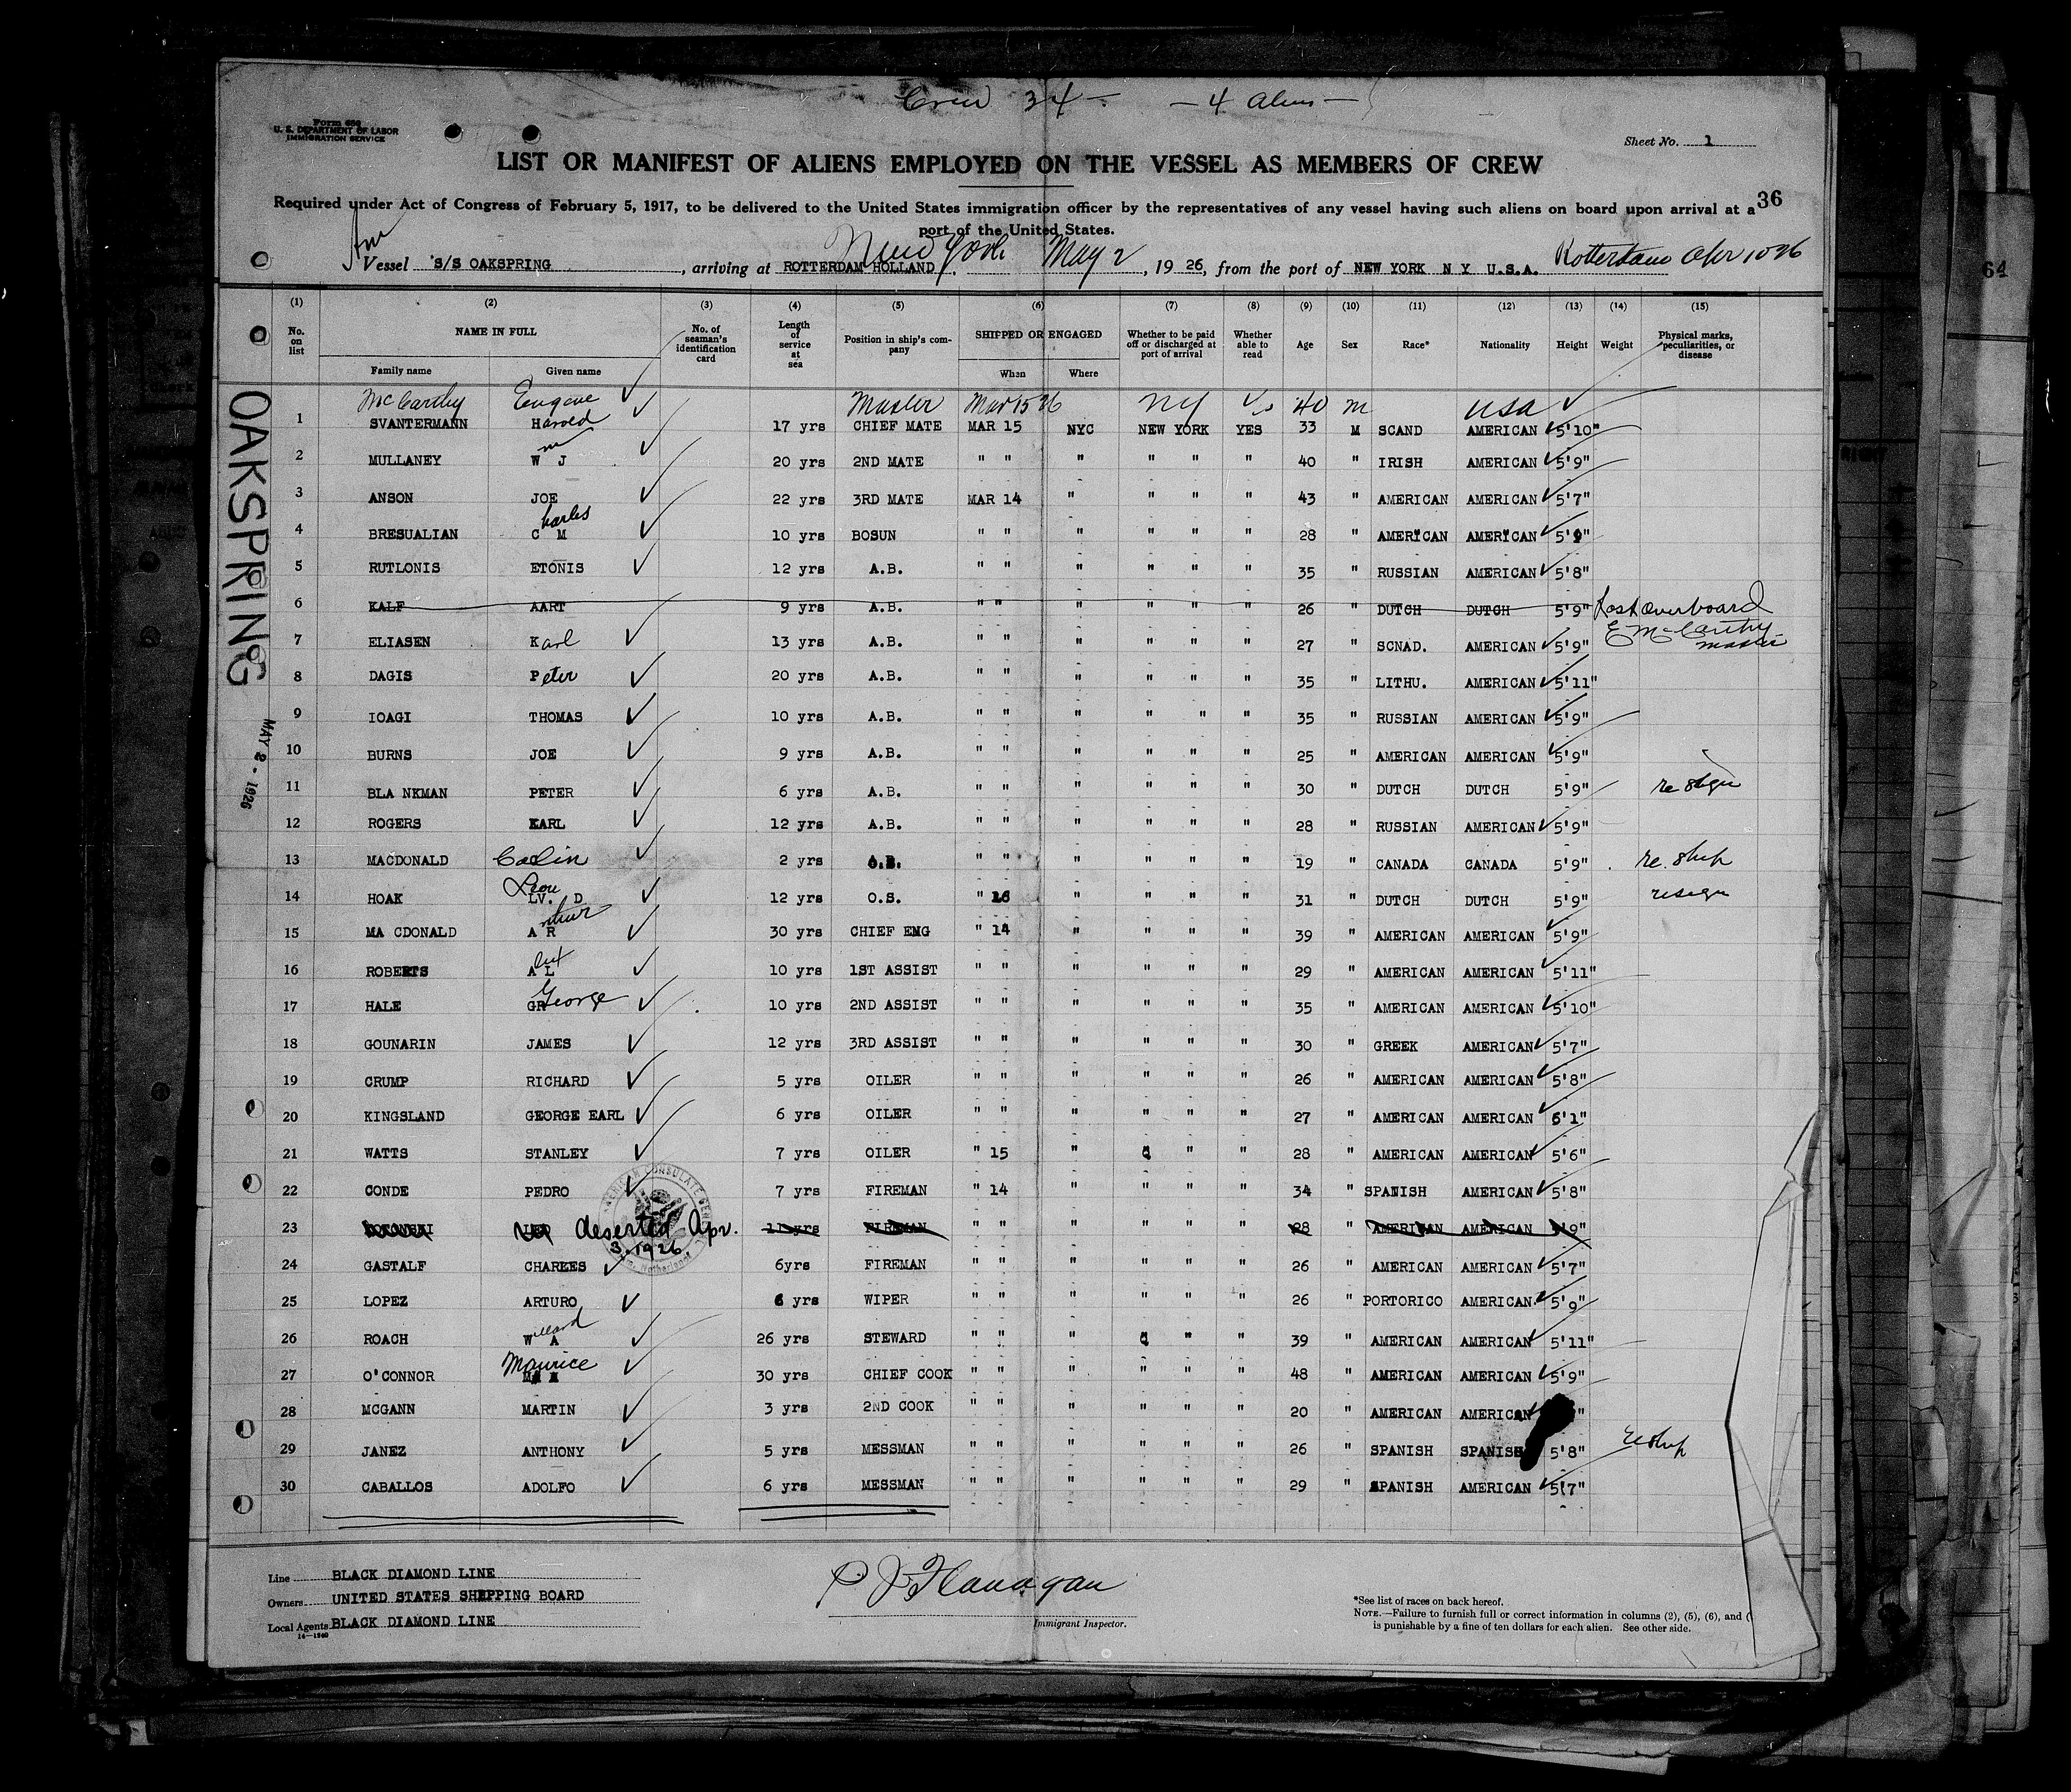 Crew 34 — — 4 Aliens —
Form 680
U. S. DEPARTMENT OF LABOR
IMMIGRATION SERVICE
Sheet No. 1
LIST OR MANIFEST OF ALIENS EMPLOYED ON THE VESSEL AS MEMBERS OF CREW
36
Required under Act of Congress of February 5, 1917, to be delivered to the United States immigration officer by the representatives of any vessel having such aliens on board upon arrival at a
port of the United States.
Am New York May 2 Rotterdam Apr 10 26
Vessel S/S OAKSPRING, arriving at ROTTERDAM HOLLAND, 1926, from the port of NEW YORK N Y U.S.A.
64
(1) (2) (3) (4) (5) (6) (7) (8) (9) (10) (11) (12) (13) (14) (15)
No. on list NAME IN FULL Family name Given name No. of seaman's identification card Length of service at sea Position in ship's company SHIPPED OR ENGAGED When Where Whether to be paid off or discharged at port of arrival Whether able to read Age Sex Race* Nationality Height Weight Physical marks, peculiarities, or disease
McCarthy Eugene Master Mar 15 26 NY 40 m USA
1 SVANTERMANN Harold 17 yrs CHIEF MATE MAR 15 NYC NEW YORK YES 33 M SCAND AMERICAN 5'10"
2 MULLANEY W J 20 yrs 2ND MATE " " " " " " 40 " IRISH AMERICAN 5'9"
3 ANSON JOE 22 yrs 3RD MATE MAR 14 " " " " 43 " AMERICAN AMERICAN 5'7"
4 BRESUALIAN C harles M 10 yrs BOSUN " " " " " " 28 " AMERICAN AMERICAN 5'9"
5 RUTLONIS ETONIS 12 yrs A.B. " " " " " " 35 " RUSSIAN AMERICAN 5'8"
6 KALF AART 9 yrs A.B. " " " " " " 26 " DUTCH DUTCH 5'9" Lost overboard
E McCarthy
master
7 ELIASEN Karl 13 yrs A.B. " " " " " " 27 " SCNAD. AMERICAN 5'9"
8 DAGIS Peter 20 yrs A.B. " " " " " " 35 " LITHU. AMERICAN 5'11"
9 IOAGI THOMAS 10 yrs A.B. " " " " " " 35 " RUSSIAN AMERICAN 5'9"
10 BURNS JOE 9 yrs A.B. " " " " " " 25 " AMERICAN AMERICAN 5'9"
11 BLA NKMAN PETER 6 yrs A.B. " " " " " " 30 " DUTCH DUTCH 5'9" re sign
12 ROGERS KARL 12 yrs A.B. " " " " " " 28 " RUSSIAN AMERICAN 5'9"
13 MACDONALD Colin 2 yrs O.S. " " " " " " 19 " CANADA CANADA 5'9" re. ship
14 HOAK Leou LV. D 12 yrs O.S. " 16 " " " " 31 " DUTCH DUTCH 5'9" resign
15 MA CDONALD A rthur R 30 yrs CHIEF ENG " 14 " " " " 39 " AMERICAN AMERICAN 5'9"
16 ROBERTS A L 10 yrs 1ST ASSIST " " " " " " 29 " AMERICAN AMERICAN 5'11"
17 HALE George 10 yrs 2ND ASSIST " " " " " " 35 " AMERICAN AMERICAN 5'10"
18 GOUNARIN JAMES 12 yrs 3RD ASSIST " " " " " " 30 " GREEK AMERICAN 5'7"
19 CRUMP RICHARD 5 yrs OILER " " " " " " 26 " AMERICAN AMERICAN 5'8"
20 KINGSLAND GEORGE EARL 6 yrs OILER " " " " " " 27 " AMERICAN AMERICAN 6'1"
21 WATTS STANLEY 7 yrs OILER " 15 " " " " 28 " AMERICAN AMERICAN 5'6"
22 CONDE PEDRO 7 yrs FIREMAN " 14 " " " " 34 " SPANISH AMERICAN 5'8"
23 deserted Apr. 3, 1926. 11 yrs FIREMAN " " " " " " 28 " AMERICAN AMERICAN 5'9"
24 GASTALF CHARLES 6yrs FIREMAN " " " " " " 26 " AMERICAN AMERICAN 5'7"
25 LOPEZ ARTURO 6 yrs WIPER " " " " " " 26 " PORTORICO AMERICAN 5'9"
26 ROACH W illard A 26 yrs STEWARD " " " " " 39 " AMERICAN AMERICAN 5'11"
27 O'CONNOR Maurice 30 yrs CHIEF COOK " " " " " " 48 " AMERICAN AMERICAN 5'9"
28 MCGANN MARTIN 3 yrs 2ND COOK " " " " " " 20 " AMERICAN AMERICAN
29 JANEZ ANTHONY 5 yrs MESSMAN " " " " " " 26 " SPANISH SPANISH 5'8" reship
30 CABALLOS ADOLFO 6 yrs MESSMAN " " " " " " 29 " SPANISH AMERICAN 5'7"
OAKSPRING
MAY 2 - 1926
AMERICAN CONSULATE GENERAL
Netherlands
Line BLACK DIAMOND LINE
Owners UNITED STATES SHIPPING BOARD
Local Agents BLACK DIAMOND LINE
14—1240
P J Flanagan
Immigrant Inspector.
*See list of races on back hereof.
NOTE.—Failure to furnish full or correct information in columns (2), (5), (6), and (
is punishable by a fine of ten dollars for each alien. See other side.